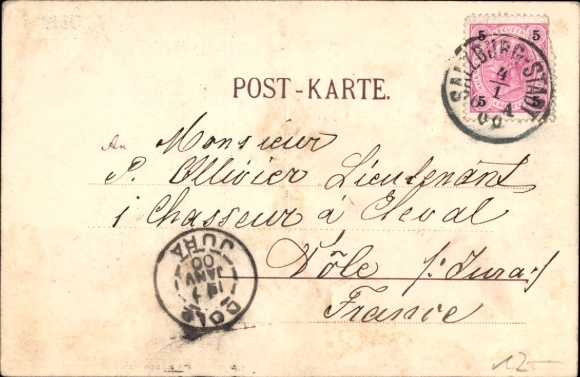 5 5
5 5
SALZBURG-STADT
4
1
A
00
POST-KARTE.
An Monsieur
P. Ollivier Lieutenant
i Chasseur à Cleval
Dôle (: Jura :)
France
DOLE
JANV
00
JURA
12-